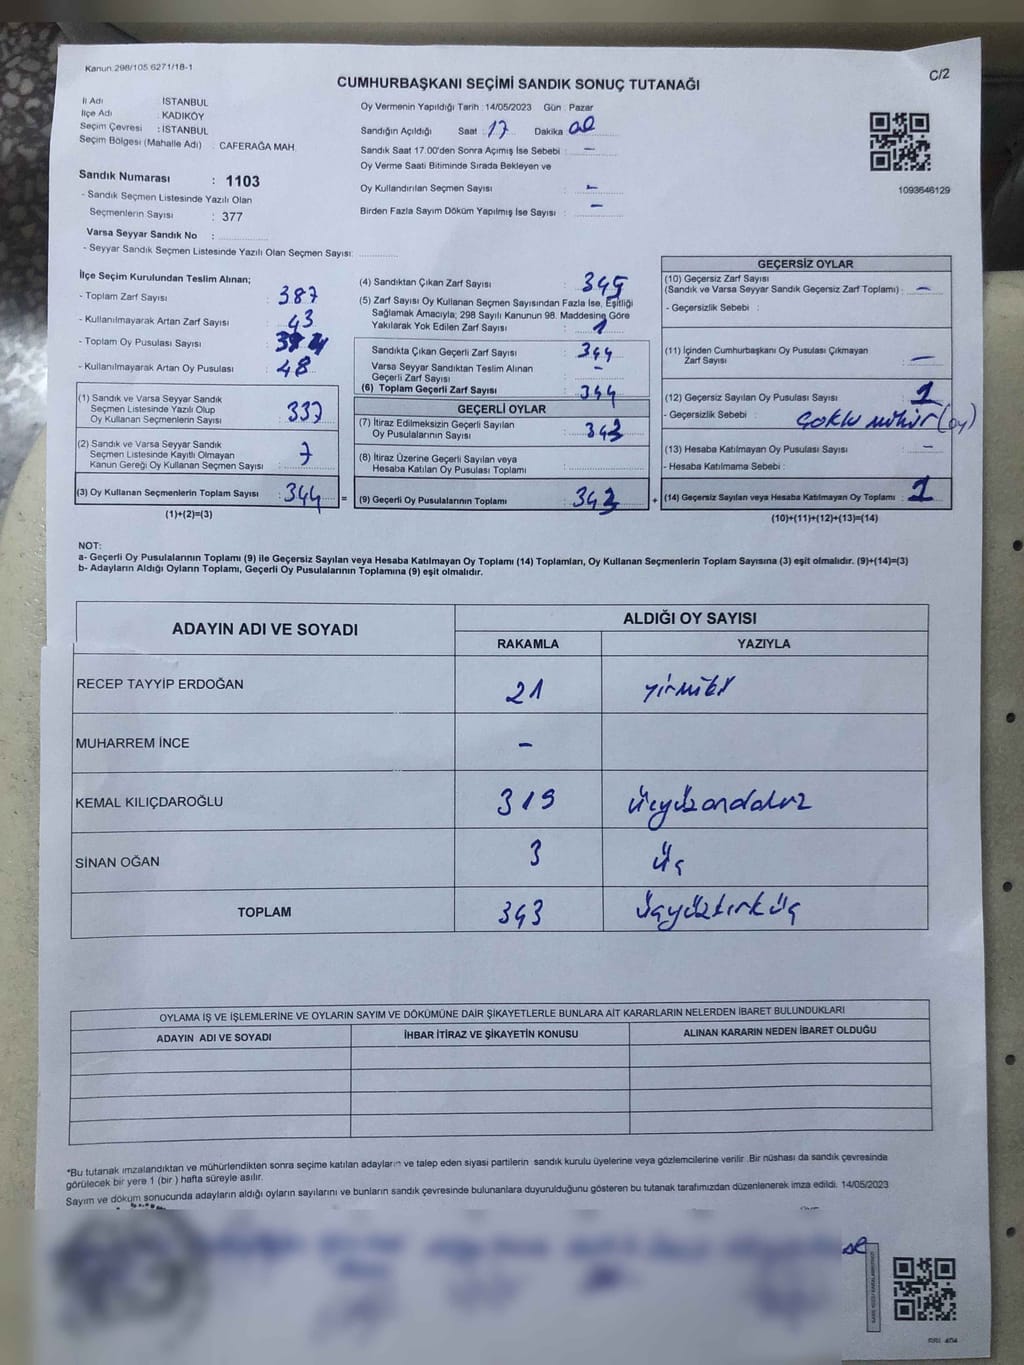 Kanun 298/105 6271/18-1
C/2
CUMHURBAŞKANI SEÇİMİ SANDIK SONUÇ TUTANAĞI
İl Adı : İSTANBUL
İlçe Adı : KADIKÖY
Seçim Çevresi : İSTANBUL
Seçim Bölgesi (Mahalle Adı) : CAFERAĞA MAH.
Sandık Numarası : 1103
- Sandık Seçmen Listesinde Yazılı Olan
Seçmenlerin Sayısı : 377
Varsa Seyyar Sandık No :
- Seyyar Sandık Seçmen Listesinde Yazılı Olan Seçmen Sayısı:
Oy Vermenin Yapıldığı Tarih : 14/05/2023 Gün : Pazar
Sandığın Açıldığı Saat : 17 Dakika
Sandık Saat 17.00'den Sonra Açımış İse Sebebi : -
Oy Verme Saati Bitiminde Sırada Bekleyen ve
Oy Kullandırılan Seçmen Sayısı : -
Birden Fazla Sayım Döküm Yapılmış İse Sayısı : -
1093646129
İlçe Seçim Kurulundan Teslim Alınan;
- Toplam Zarf Sayısı : 387
- Kullanılmayarak Artan Zarf Sayısı : 43
- Toplam Oy Pusulası Sayısı :
- Kullanılmayarak Artan Oy Pusulası : 48
(1) Sandık ve Varsa Seyyar Sandık
Seçmen Listesinde Yazılı Olup
Oy Kullanan Seçmenlerin Sayısı : 337
(2) Sandık ve Varsa Seyyar Sandık
Seçmen Listesinde Kayıtlı Olmayan
Kanun Gereği Oy Kullanan Seçmen Sayısı : 7
(3) Oy Kullanan Seçmenlerin Toplam Sayısı : 344 =
(1)+(2)=(3)
(4) Sandıktan Çıkan Zarf Sayısı : 345
(5) Zarf Sayısı Oy Kullanan Seçmen Sayısından Fazla İse, Eşitliği
Sağlamak Amacıyla; 298 Sayılı Kanunun 98. Maddesine Göre
Yakılarak Yok Edilen Zarf Sayısı : 1
Sandıkta Çıkan Geçerli Zarf Sayısı : 344
Varsa Seyyar Sandıktan Teslim Alınan
Geçerli Zarf Sayısı : -
(6) Toplam Geçerli Zarf Sayısı : 344
GEÇERLİ OYLAR
(7) İtiraz Edilmeksizin Geçerli Sayılan
Oy Pusulalarının Sayısı : 343
(8) İtiraz Üzerine Geçerli Sayılan veya
Hesaba Katılan Oy Pusulası Toplamı :
(9) Geçerli Oy Pusulalarının Toplamı : 343 +
GEÇERSİZ OYLAR
(10) Geçersiz Zarf Sayısı
(Sandık ve Varsa Seyyar Sandık Geçersiz Zarf Toplamı) : -
- Geçersizlik Sebebi :
(11) İçinden Cumhurbaşkanı Oy Pusulası Çıkmayan
Zarf Sayısı : -
(12) Geçersiz Sayılan Oy Pusulası Sayısı : 1
- Geçersizlik Sebebi : Çoklu mühür (oy)
(13) Hesaba Katılmayan Oy Pusulası Sayısı : -
- Hesaba Katılmama Sebebi :
(14) Geçersiz Sayılan veya Hesaba Katılmayan Oy Toplamı : 1
(10)+(11)+(12)+(13)=(14)
NOT:
a- Geçerli Oy Pusulalarının Toplamı (9) ile Geçersiz Sayılan veya Hesaba Katılmayan Oy Toplamı (14) Toplamları, Oy Kullanan Seçmenlerin Toplam Sayısına (3) eşit olmalıdır. (9)+(14)=(3)
b- Adayların Aldığı Oyların Toplamı, Geçerli Oy Pusulalarının Toplamına (9) eşit olmalıdır.
ADAYIN ADI VE SOYADI ALDIĞI OY SAYISI
RAKAMLA YAZIYLA
RECEP TAYYİP ERDOĞAN 21 yirmibir
MUHARREM İNCE -
KEMAL KILIÇDAROĞLU 319 üçyüzondokuz
SİNAN OĞAN 3 üç
TOPLAM 343 üçyüzkırküç
OYLAMA İŞ VE İŞLEMLERİNE VE OYLARIN SAYIM VE DÖKÜMÜNE DAİR ŞİKAYETLERLE BUNLARA AİT KARARLARIN NELERDEN İBARET BULUNDUKLARI
ADAYIN ADI VE SOYADI İHBAR İTİRAZ VE ŞİKAYETİN KONUSU ALINAN KARARIN NEDEN İBARET OLDUĞU
*Bu tutanak imzalandıktan ve mühürlendikten sonra seçime katılan adayların ve talep eden siyasi partilerin sandık kurulu üyelerine veya gözlemcilerine verilir. Bir nüshası da sandık çevresinde
görülecek bir yere 1 (bir ) hafta süreyle asılır.
Sayım ve döküm sonucunda adayların aldığı oyların sayılarını ve bunların sandık çevresinde bulunanlara duyurulduğunu gösteren bu tutanak tarafımızdan düzenlenerek imza edildi. 14/05/2023